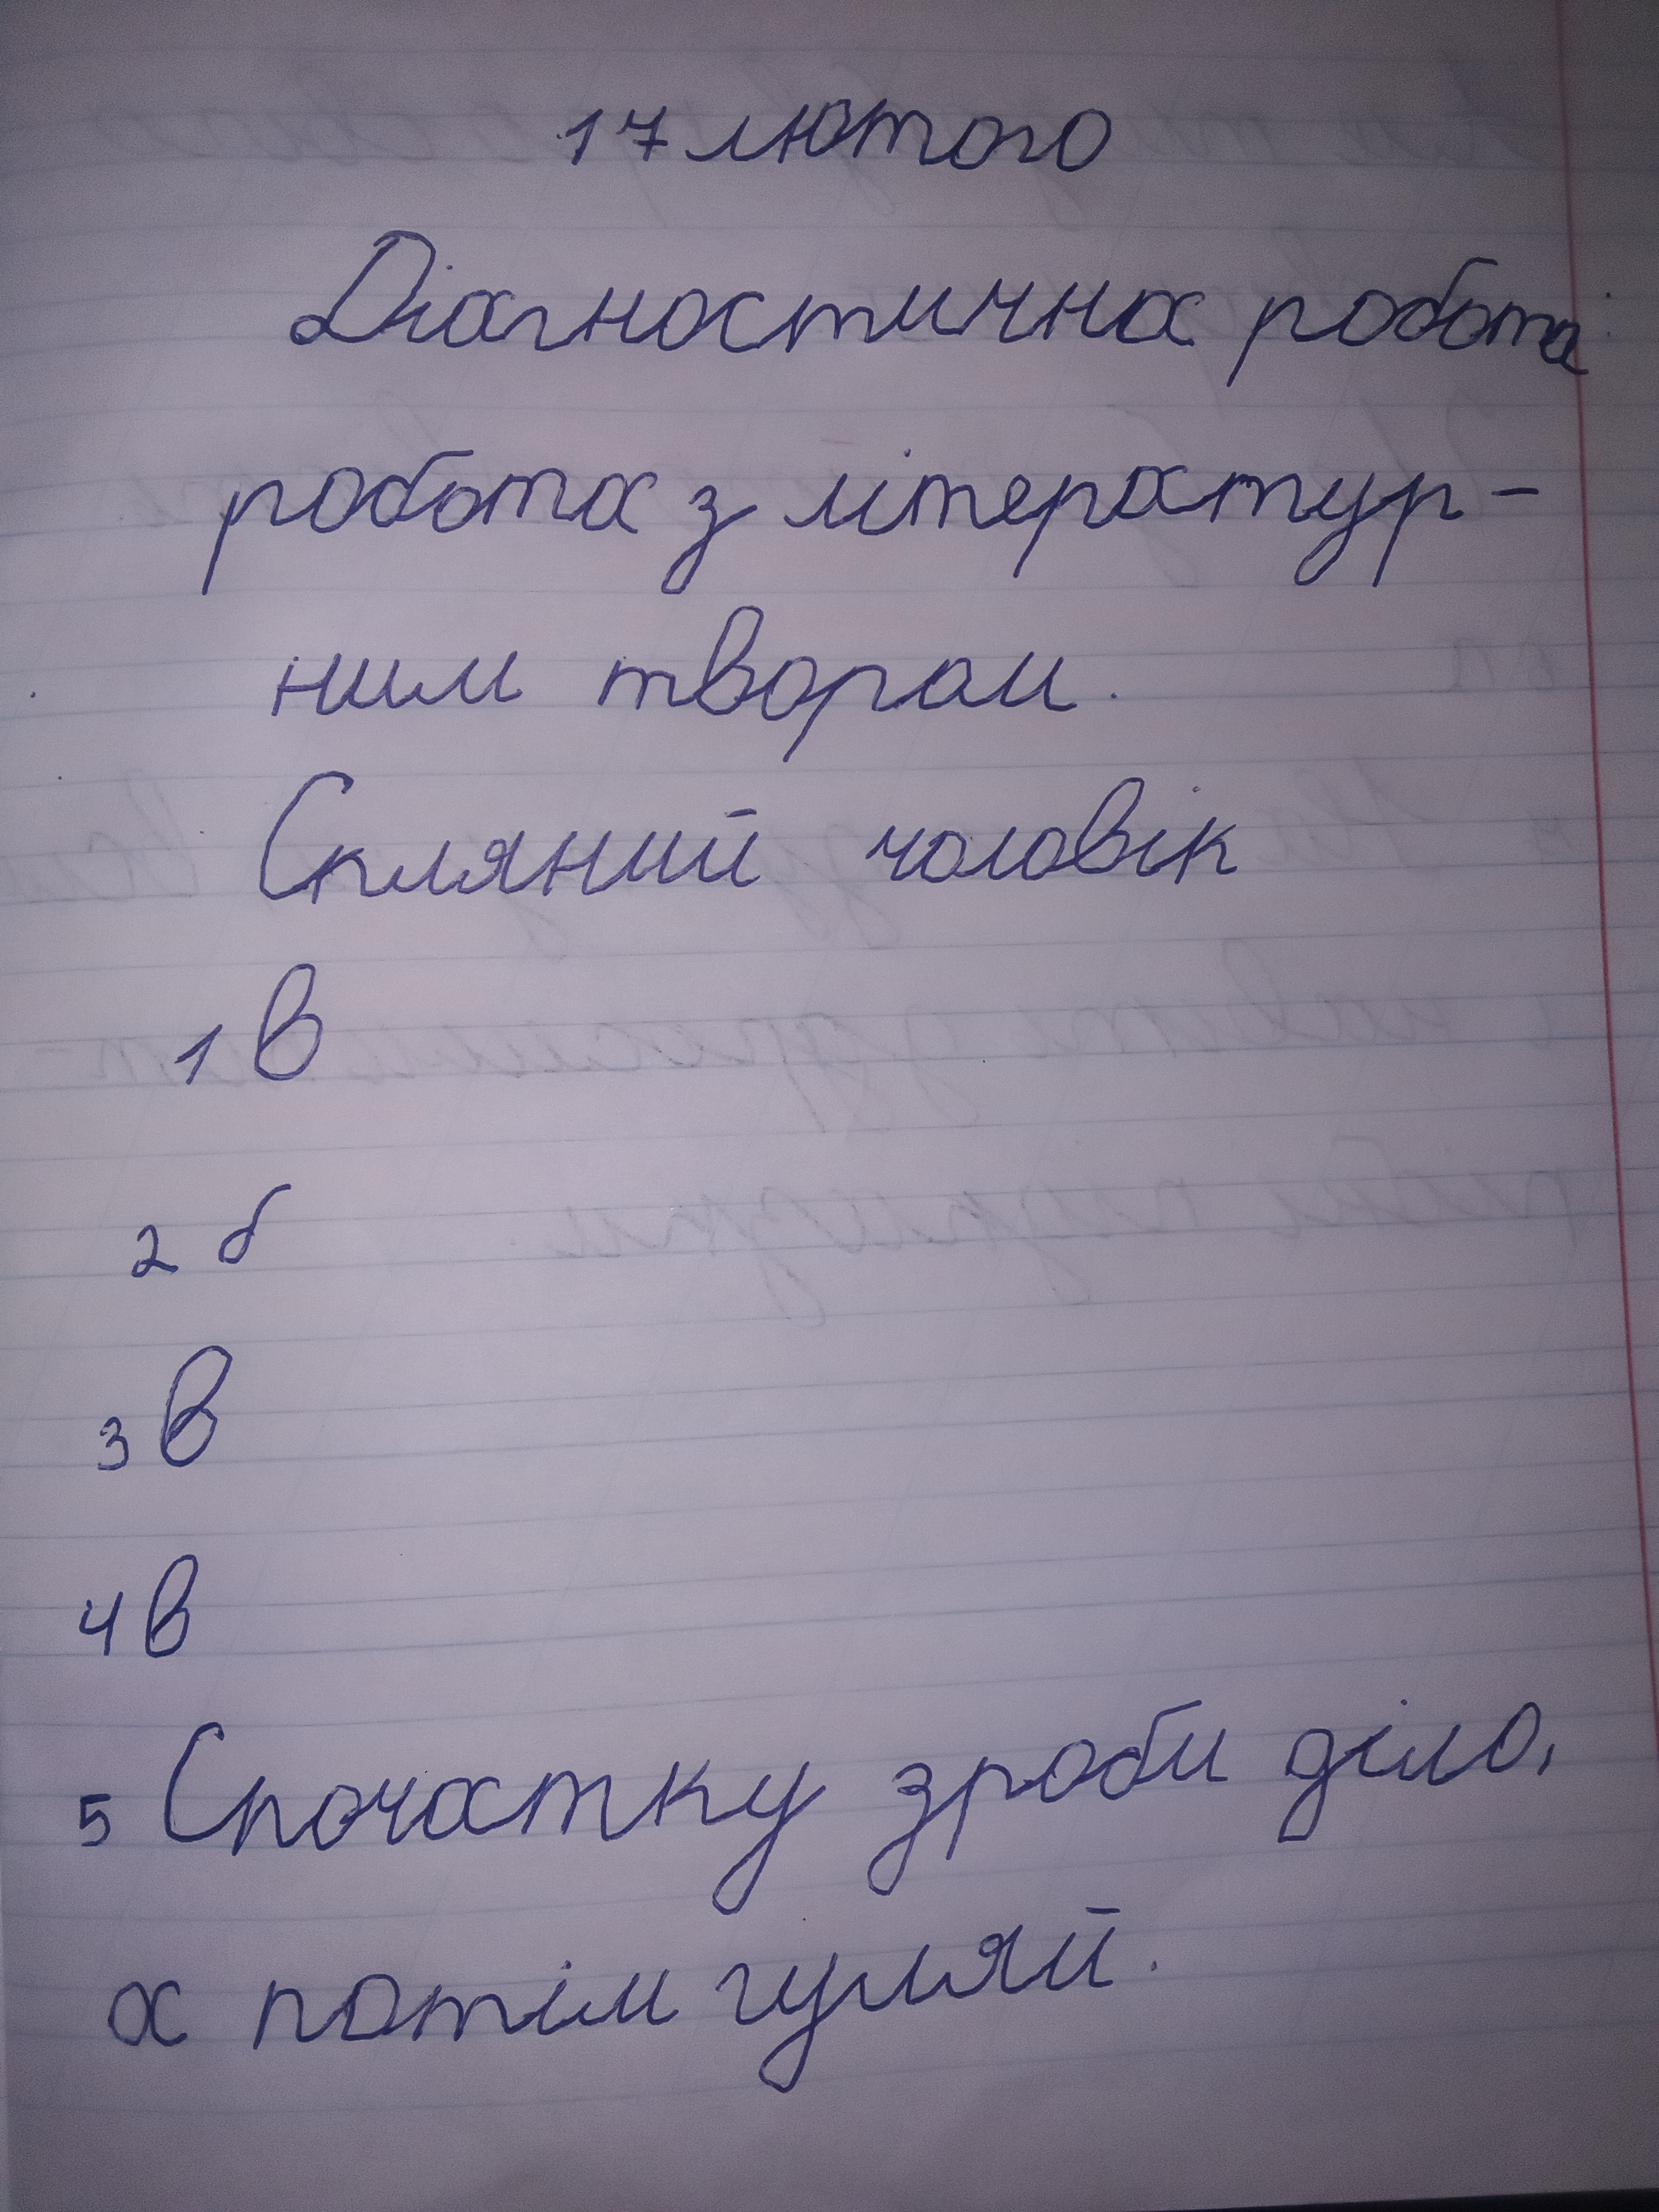 17 лютого
Діагностична робота
робота з літератур-
ним твором.
Скляний чоловік
1 в
2 б
3 в
4 в
5 Спочатку зроби діло,
а потім гуляй.